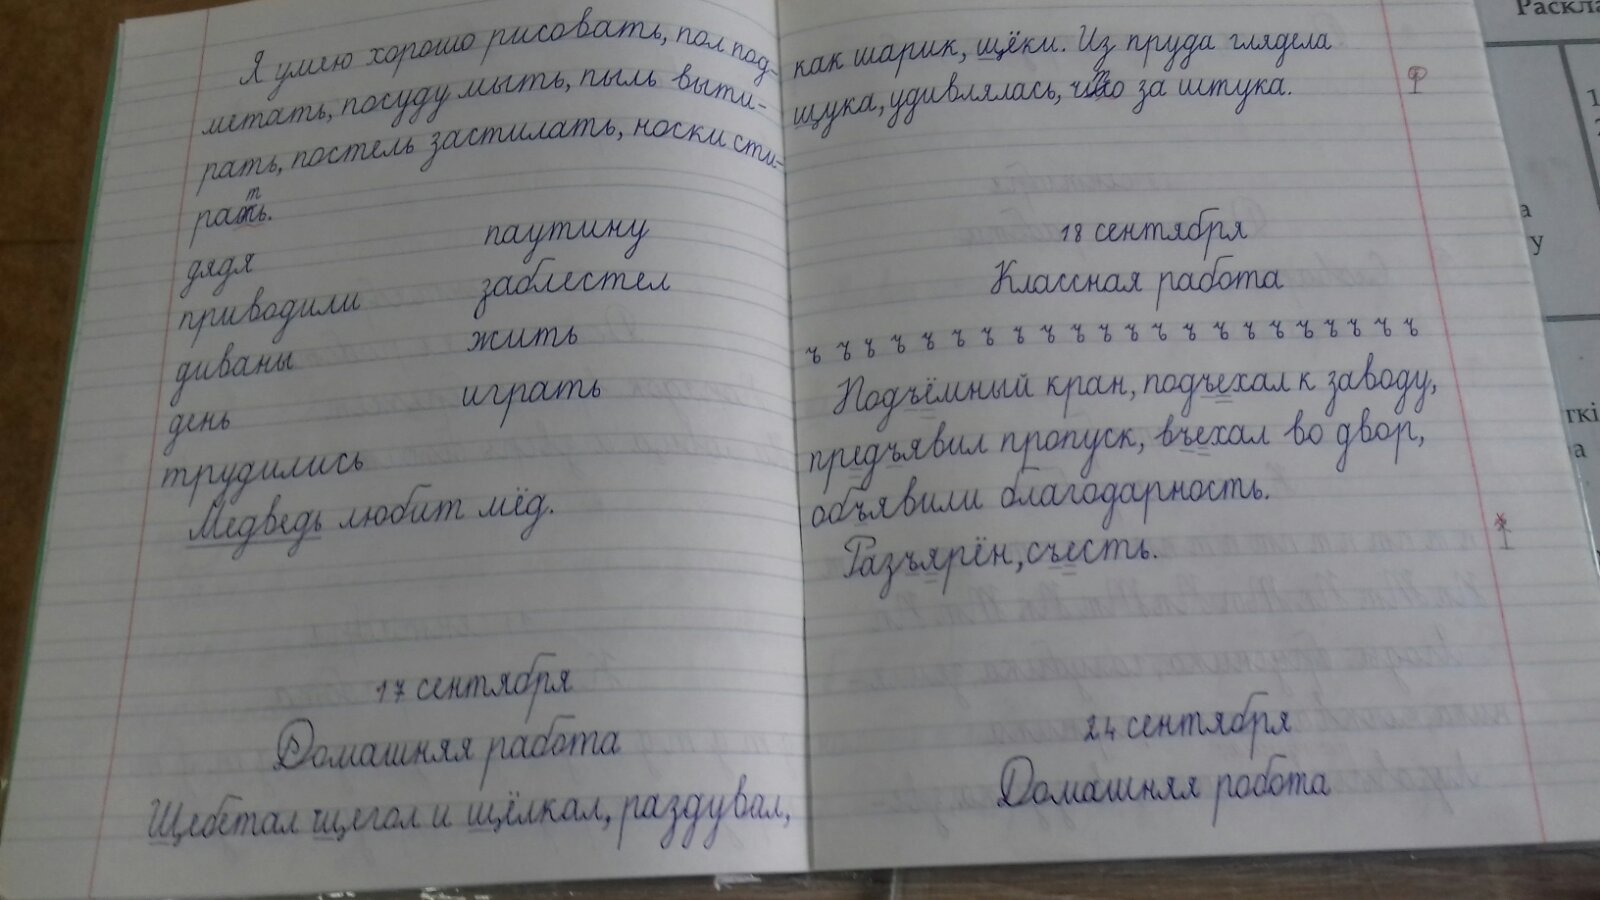 Я умею хорошо рисовать, пол под-
метать, посуду мыть, пыль выти-
рать, постель застилать, носки сти-
рать.
дядя
приводили
диваны
день
трудились
паутину
заблестел
жить
играть
Медведь любит мёд.
17 сентября
Домашняя работа
Щебетал щегол и щёлкал, раздувал,
как шарик, щёки. Из пруда глядела
щука, удивлялась, что за штука.
18 сентября
Классная работа
ъ ъ ъ ъ ъ ъ ъ ъ ъ ъ ъ ъ ъ ъ ъ ъ ъ ъ ъ ъ ъ ъ
Подъёмный кран, подъехал к заводу,
предъявил пропуск, въехал во двор,
объявили благодарность.
Разъярён, съесть.
24 сентября
Домашняя робота